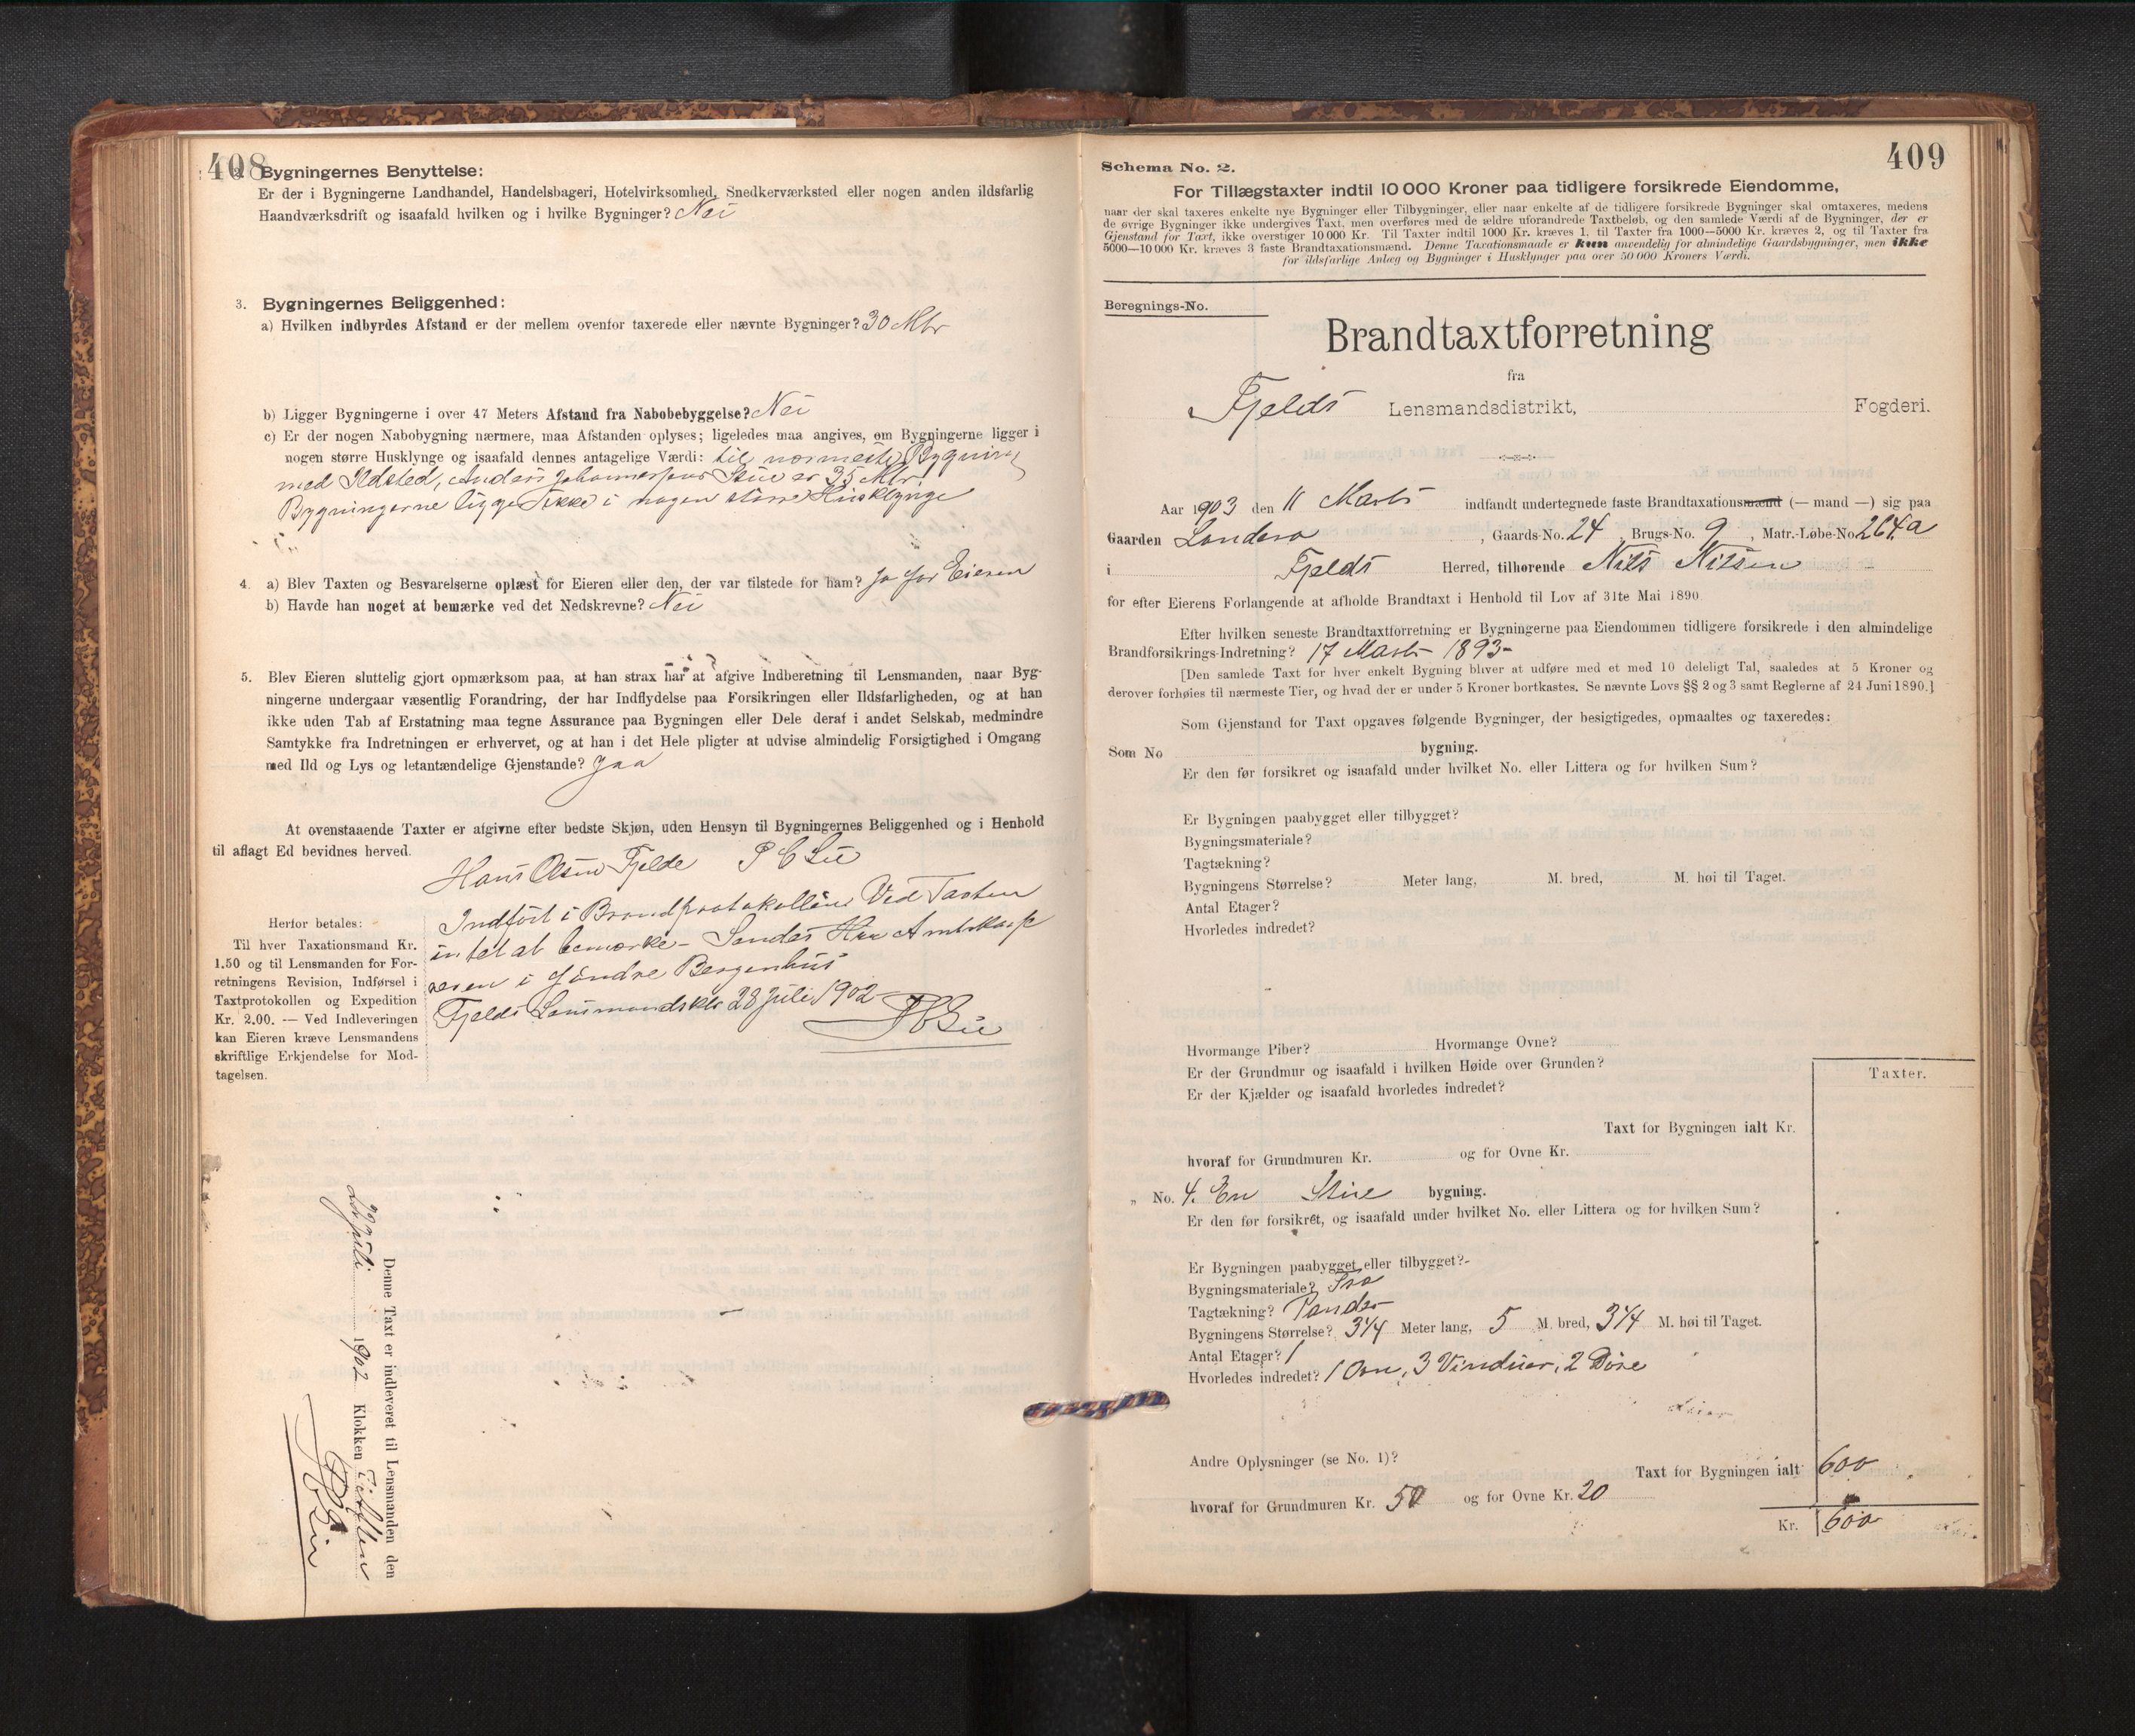 408
2. Bygningernes Benyttelse:
Er der i Bygningerne Landhandel, Handelsbageri, Hotelvirksomhed, Snedkerværksted eller nogen anden ildsfarlig
Haandværksdrift og isaafald hvilken og i hvilke Bygninger? Nei
3. Bygningernes Beliggenhed:
a) Hvilken indbyrdes Afstand er der mellem ovenfor taxerede eller nævnte Bygninger? 30 Mtr
b) Ligger Bygningerne i over 47 Meters Afstand fra Nabobebyggelse? Nei
c) Er der nogen Nabobygning nærmere, maa Afstanden oplyses; ligeledes maa angives, om Bygningerne ligger i
nogen større Husklynge og isaafald dennes antagelige Værdi: til nærmeste Bygning
med Ildsted, Anders Johannessens Stue er 35 Mtr
Bygningerne ligger ikke i nogen større Husklynge
4. a) Blev Taxten og Besvarelserne oplæst for Eieren eller den, der var tilstede for ham? Ja for Eieren
b) Havde han noget at bemærke ved det Nedskrevne? Nei
5. Blev Eieren sluttelig gjort opmærksom paa, at han strax har at afgive Indberetning til Lensmanden, naar Byg-
ningerne undergaar væsentlig Forandring, der har Indflydelse paa Forsikringen eller Ildsfarligheden, og at han
ikke uden Tab af Erstatning maa tegne Assurance paa Bygningen eller Dele deraf i andet Selskab, medmindre
Samtykke fra Indretningen er erhvervet, og at han i det Hele pligter at udvise almindelig Forsigtighed i Omgang
med Ild og Lys og letantændelige Gjenstande? Jaa
At ovenstaaende Taxter er afgivne efter bedste Skjøn, uden Hensyn til Bygningernes Beliggenhed og i Henhold
til aflagt Ed bevidnes herved.
Hans Olsen Fjelde
Indført i Brandprotokollen Ved Taxten
intet at bemærke - Sendes Hrr Amtskasse
reren i Søndre Bergenhus
Fjelds Lensmandskr 28 Juli 1902
Herfor betales:
Til hver Taxationsmand Kr.
1.50 og til Lensmanden for For-
retningens Revision, Indførsel i
Taxtprotokollen og Expedition
Kr. 2.00. — Ved Indleveringen
kan Eieren kræve Lensmandens
skriftlige Erkjendelse for Mod-
tagelsen.
Denne Taxt er indleveret til Lensmanden den
Juli 1902 Klokken
409
Schema No. 2.
For Tillægstaxter indtil 10 000 Kroner paa tidligere forsikrede Eiendomme,
naar der skal taxeres enkelte nye Bygninger eller Tilbygninger, eller naar enkelte af de tidligere forsikrede Bygninger skal omtaxeres, medens
de øvrige Bygninger ikke undergives Taxt, men overføres med de ældre uforandrede Taxtbeløb, og den samlede Værdi af de Bygninger, der er
Gjenstand for Taxt, ikke overstiger 10 000 Kr. Til Taxter indtil 1000 Kr. kræves 1, til Taxter fra 1000—5000 Kr. kræves 2, og til Taxter fra
5000—10 000 Kr. kræves 3 faste Brandtaxationsmænd. Denne Taxationsmaade er kun anvendelig for almindelige Gaardsbygninger, men ikke
for ildsfarlige Anlæg og Bygninger i Husklynger paa over 50 000 Kroners Værdi.
Beregnings-No.
Brandtaxtforretning
fra
Fjelds Lensmandsdistrikt, Fogderi.
Aar 1903 den 11 Marts indfandt undertegnede faste Brandtaxationsmænd (— mand —) sig paa
Gaarden Landero, Gaards-No. 24, Brugs-No. 9, Matr.-Løbe-No. 264a
i Fjelds Herred, tilhørende Nils Nilsen
for efter Eierens Forlangende at afholde Brandtaxt i Henhold til Lov af 31te Mai 1890.
Efter hvilken seneste Brandtaxtforretning er Bygningerne paa Eiendommen tidligere forsikrede i den almindelige
Brandforsikrings-Indretning? 17 Marts 1893-
[Den samlede Taxt for hver enkelt Bygning bliver at udføre med et med 10 deleligt Tal, saaledes at 5 Kroner og
derover forhøies til nærmeste Tier, og hvad der er under 5 Kroner bortkastes. Se nævnte Lovs §§ 2 og 3 samt Reglerne af 24 Juni 1890.]
Som Gjenstand for Taxt opgaves følgende Bygninger, der besigtigedes, opmaaltes og taxeredes:
Som No bygning.
Er den før forsikret og isaafald under hvilket No. eller Littera og for hvilken Sum?
Er Bygningen paabygget eller tilbygget?
Bygningsmateriale?
Tagtækning?
Bygningens Størrelse? Meter lang, M. bred, M. høi til Taget.
Antal Etager?
Hvorledes indredet?
Hvormange Piber? Hvormange Ovne?
Er der Grundmur og isaafald i hvilken Høide over Grunden?
Er der Kjælder og isaafald hvorledes indredet?
Taxter.
Taxt for Bygningen ialt Kr.
hvoraf for Grundmuren Kr. og for Ovne Kr.
„ No. 4. En Stue bygning.
Er den før forsikret, og isaafald under hvilket No. eller Littera og for hvilken Sum?
Er Bygningen paabygget eller tilbygget?-
Bygningsmateriale? Træ
Tagtækning? Pander
Bygningens Størrelse? 3 1/4 Meter lang, 5 M. bred, 3 1/4 M. høi til Taget.
Antal Etager? 1
Hvorledes indredet? 1 Ovn, 3 Vinduer, 2 Døre
Andre Oplysninger (se No. 1)?
Taxt for Bygningen ialt 600
hvoraf for Grundmuren Kr. 50 og for Ovne Kr. 20
Kr. 600